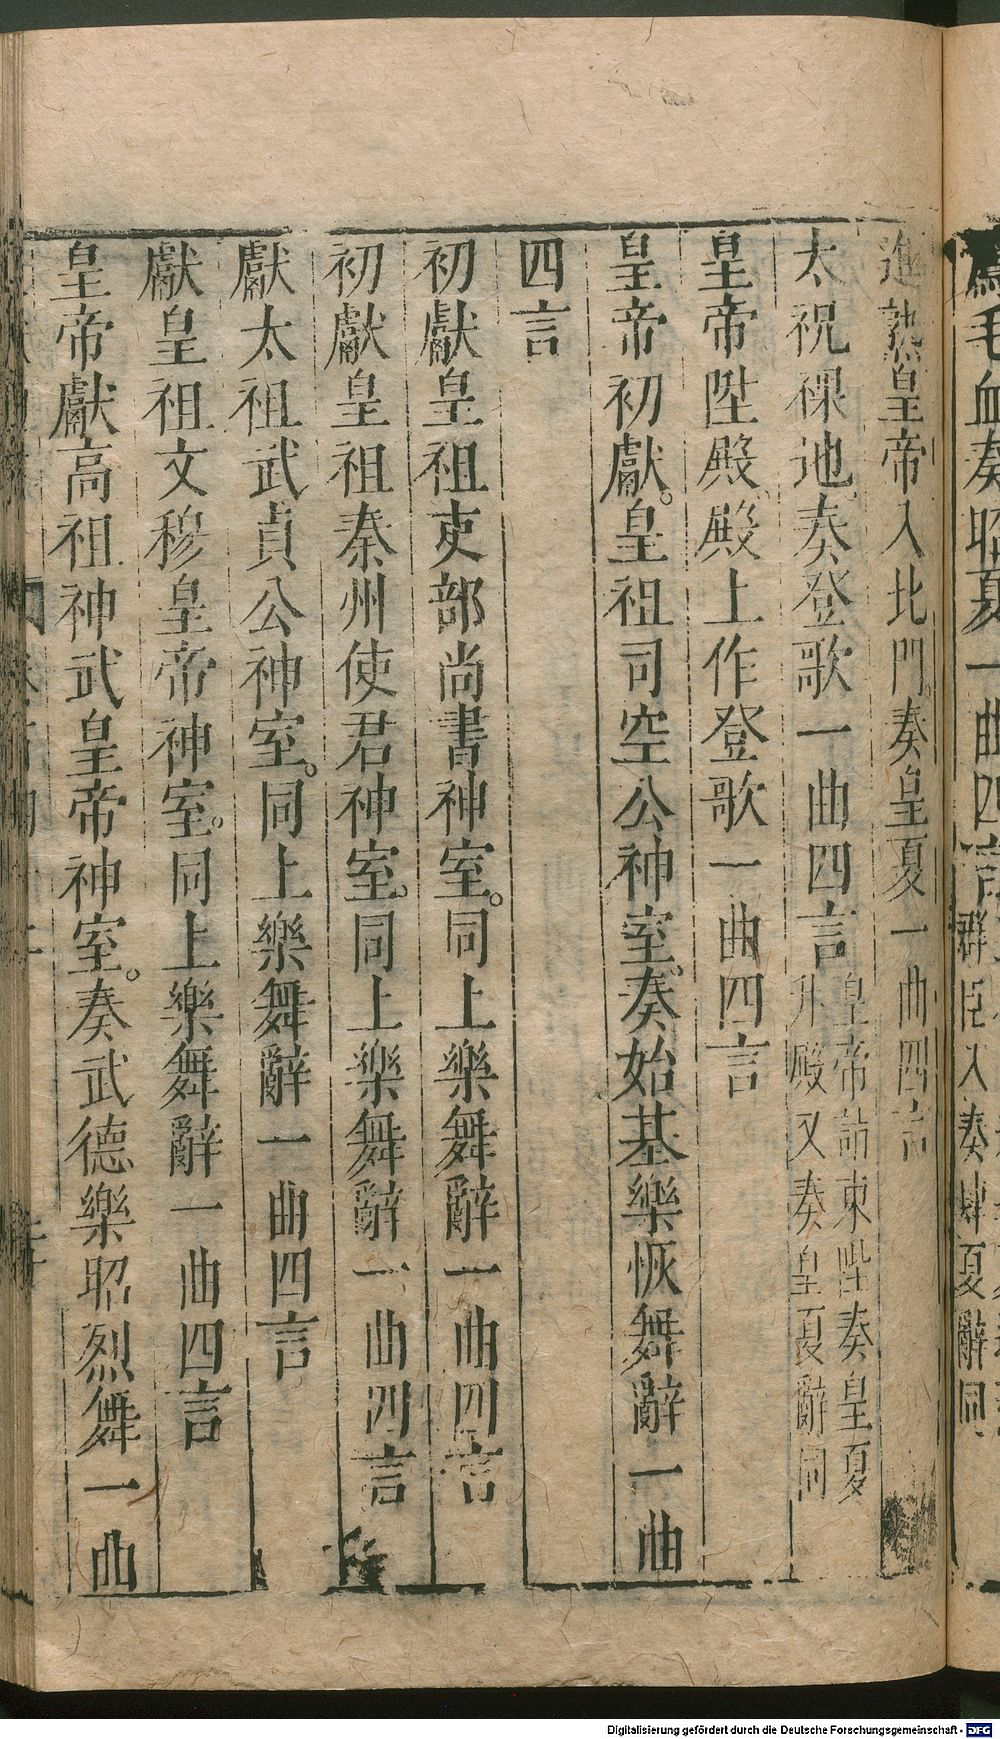 薦毛血奏昭夏一曲四言
群臣入奏肆夏辭同
進熟皇帝入北門奏皇夏一曲四言
太祝祼地奏登歌一曲四言皇帝詣東陛奏皇夏
升殿又奏皇夏辭同
皇帝陞殿殿上作登歌一曲四言
皇帝初獻皇祖司空公神室奏始基樂恢舞辭一曲
四言
初獻皇祖吏部尚書神室同上樂舞辭一曲四言
初獻皇祖秦州使君神室同上樂舞辭一曲四言
獻太祖武貞公神室同上樂舞辭一曲四言
獻皇祖文穆皇帝神室同上樂舞辭一曲四言
皇帝獻高祖神武皇帝神室奏武德樂昭烈舞一曲
Digitalisierung gefördert durch die Deutsche Forschungsgemeinschaft - DFG